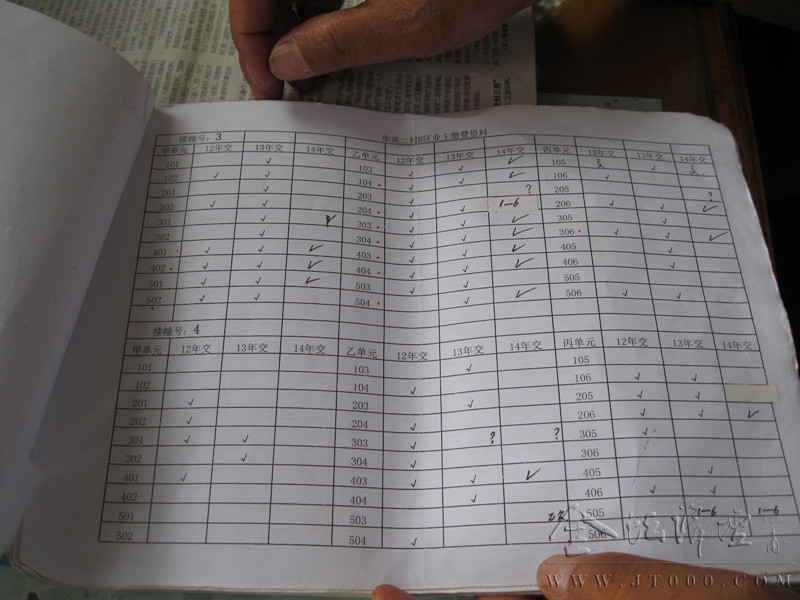 华苑二村B区业主缴费资料
楼幢号：3
甲单元 12年交 13年交 14年交 乙单元 12年交 13年交 14年交 丙单元 12年交 13年交 14年交
101 √ 103 √ √ √ 105 √
102 √ √ 104 √ √ √ 106 √
201 √ 203 √ ? 205 ?
202 √ √ 204 √ √ 1-6 206 √ √ √
301 √ √ 303 √ √ √ 305 √
302 √ 304 √ √ √ 306 √ √ √
401 √ √ √ 403 √ √ √ 405 √
402 √ √ √ 404 √ √ √ 406 √
501 √ √ √ 503 √ √ 505
502 √ √ 504 √ √ 506 √ √
楼幢号：4
甲单元 12年交 13年交 14年交 乙单元 12年交 13年交 14年交 丙单元 12年交 13年交 14年交
101 103 √ 105
102 104 √ 106 √ √
201 √ 203 √ 205 √ √
202 √ 204 √ 206 √ √ √
301 √ √ 303 √ ? ? 305 √
302 √ 304 √ 306
401 √ 403 √ √ √ 405 √
402 404 √ 406 √ √
501 503 505 1-6 1-6
502 504 √ 506
WWW.JT000.COM